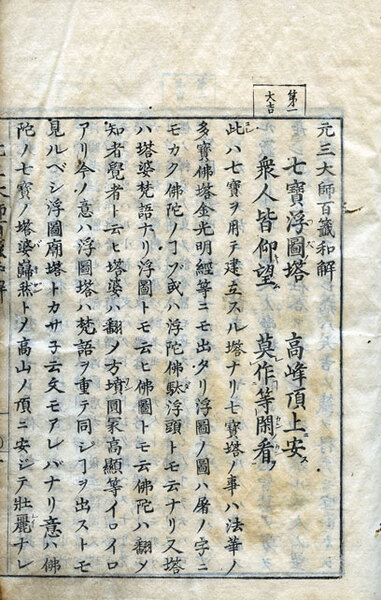 第一
大吉
元三大師百籤和解
七寶浮圖塔 高峰頂上安
衆人皆仰望 莫作等閑看
此ハ七寶ヲ用テ建立スル塔ナリ七寶塔ノ事ハ法華ノ
多寶佛塔金光明經等ニモ出タリ浮圖ノ圖ハ屠ノ字ニ
モカク佛陀ノヿブ或ハ浮陀佛馱浮頭トモ云ナリ又塔
ハ塔婆梵語ナリ浮圖トモ云ヒ佛圖トモ云佛陀ハ翻メ
知者覺者ト云ヒ塔婆ハ翻ノ方墳圓冢高顯等イロイロ
アリ今ノ意ハ浮圖塔ハ梵語ヲ重テ同シヿヲ出ストモ
見ルベシ浮圖廟塔トカサ子云文モアレバナリ意ハ佛
陀ノ七寶ノ塔婆歸然トノ高山ノ頂ニ安ジテ壯麗ナレ